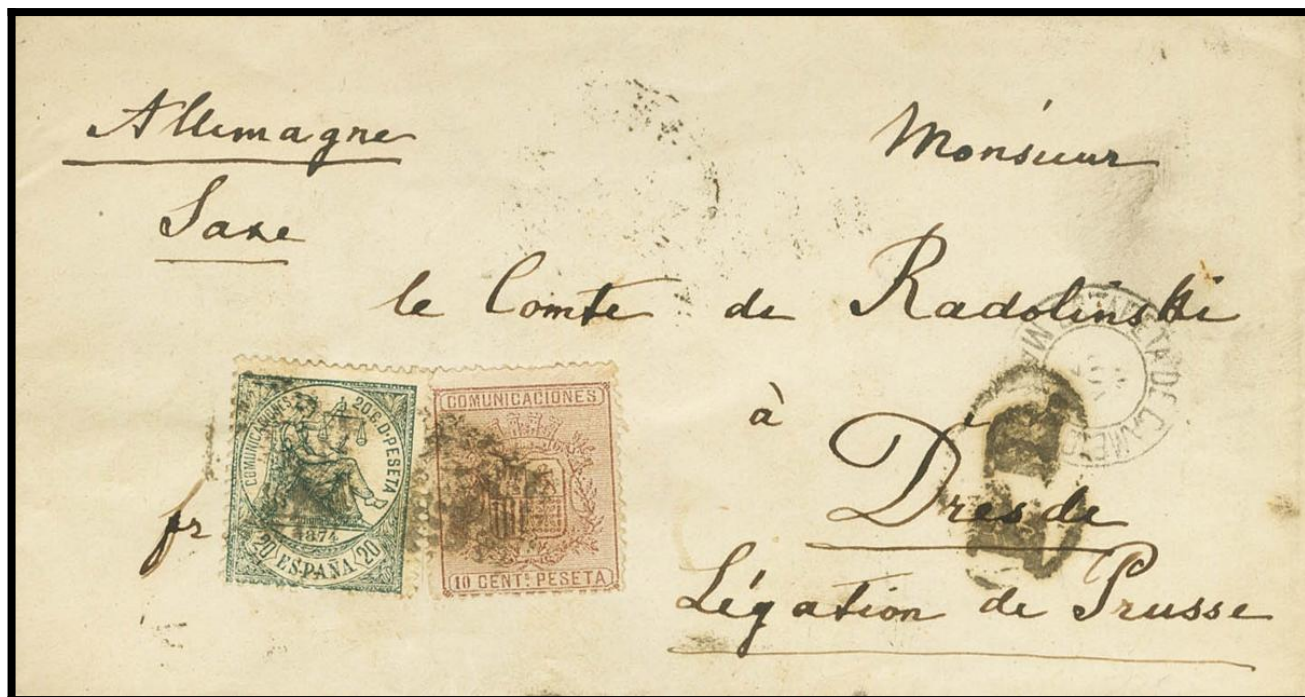 Allemagne
Saxe
Monsieur
le Comte de Radolinski
à
Dresde
Légation de Prusse
fr
COMUNICACIONES
20 C. D. PESETA
1874
20 ESPAÑA 20
COMUNICACIONES
10 CENT. PESETA
ESTAFETA DE CAMBIO